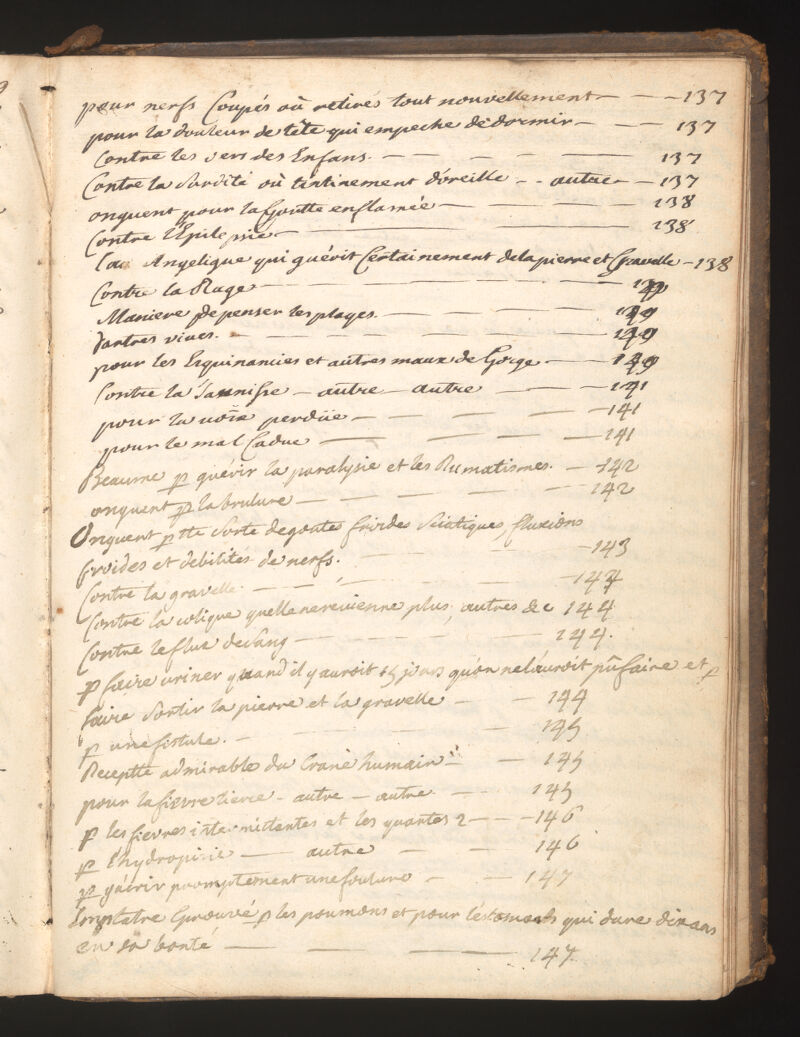 pour nerfs Coupés où retirés tout nouvellement — — — 137
pour la douleur de tête qui empeche de dormir — — 137
Contre les vers des Enfans. — — — — — 137
Contre la Surdité où tintinement d'oreille - - autre — 137
onguent pour la Goutte enflamée — — — — 138
Contre l'Epilepsie — — — — — 138
Angelique qui guérit Certainement de la pierre et Gravelle — 138
Contre la Rage — — — — —
Maniere de penser les playes — — — —
Dartres vives. — — — — —
pour les Esquinancies et autres maux de Gorge — —
Contre la Jaunisse — autre — autre — — — 141
pour la voix perdüe — — — — — 141
pour le mal Caduc — — — — 141
Beaume p guérir la paralysie et les Rumatismes. — 142
onguent p la brulure — — — — — 142
Onguent p tte Sorte de goutes froides Sciatiques, fluxions
froides et debilités de nerfs. — — — — 143
Contre la gravelle. — — — — — 144
Contre la colique quelle ne revienne plus, autres &c 144
Contre le flux de Sang — — — — 144.
p faire uriner quand il y auroit 15 jours qu'on ne l'auroit pû faire et p
faire Sortir la pierre et la gravelle — — 144
p une fistule. — — — — 145
Receptte admirable du Crane humain — — 145
pour la fievre tierce - autre — autre — — 145
p les fievres intermittentes et les quartes 2 — — — 146
p l'hydropisie — autre — — 146
p guérir promptement une foulure — — 147
Emplatre Eprouvé p les poumons et pour l'estomach qui dure dix ans
en sa bonté — — — — 147